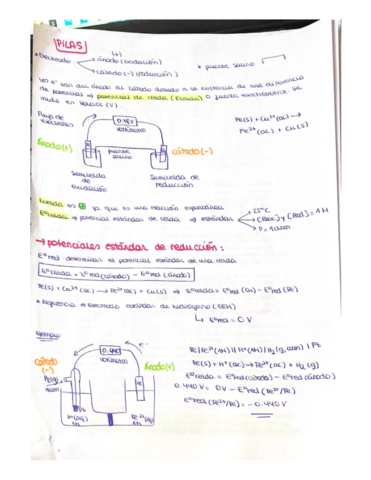 PILAS
• Electrodo
(+)
ánodo (oxidación)
cátodo (-) (reducción)
• puente salino
Los e⁻ van del ánodo al cátodo debido a la existencia de una diferencia
de potencial → potencial de celda (Ecelda) o fuerza electromotriz. Se
mide en voltios (V)
Flujo de
electrones
0.78V
voltímetro
Fe(s) + Cu²⁺(ac) →
Fe²⁺(ac) + Cu(s)
Ánodo(+)
puente
salino
cátodo(-)
Semicelda
de
oxidación
Semicelda de
reducción
Ecelda es ⊕ la que es una reacción espontánea
E°celda → potencial estándar de celda → estándar
25°C
[Reox] y [Red] = 1M
P = 1 atm
→ potenciales estándar de reducción:
E°red: determinar el potencial estándar de una celda
E°celda = E°red (cátodo) - E°red (ánodo)
Fe(s) + Cu²⁺(ac) → Fe²⁺(ac) + Cu(s) ⇒ E°celda = E°red (Cu) - E°red (Fe)
• Referencia → Electrodo estándar de hidrógeno (EEH)
↳ E°red = 0 V
Ejemplo
e⁻
0.440
voltímetro
e⁻
cátodo
(-)
Ánodo(+)
1atm
Pt
H⁺(ac)
1M
Fe²⁺(ac)
Fe/Fe²⁺(1M) || H⁺(1M)/H₂(g, 1atm) / Pt
Fe(s) + H⁺(ac) → Fe²⁺(ac) + H₂(g)
E°celda = E°red(cátodo) - E°red (ánodo)
0.440V = 0V - E°red (Fe²⁺/Fe)
E°red (Fe²⁺/Fe) = -0.440V